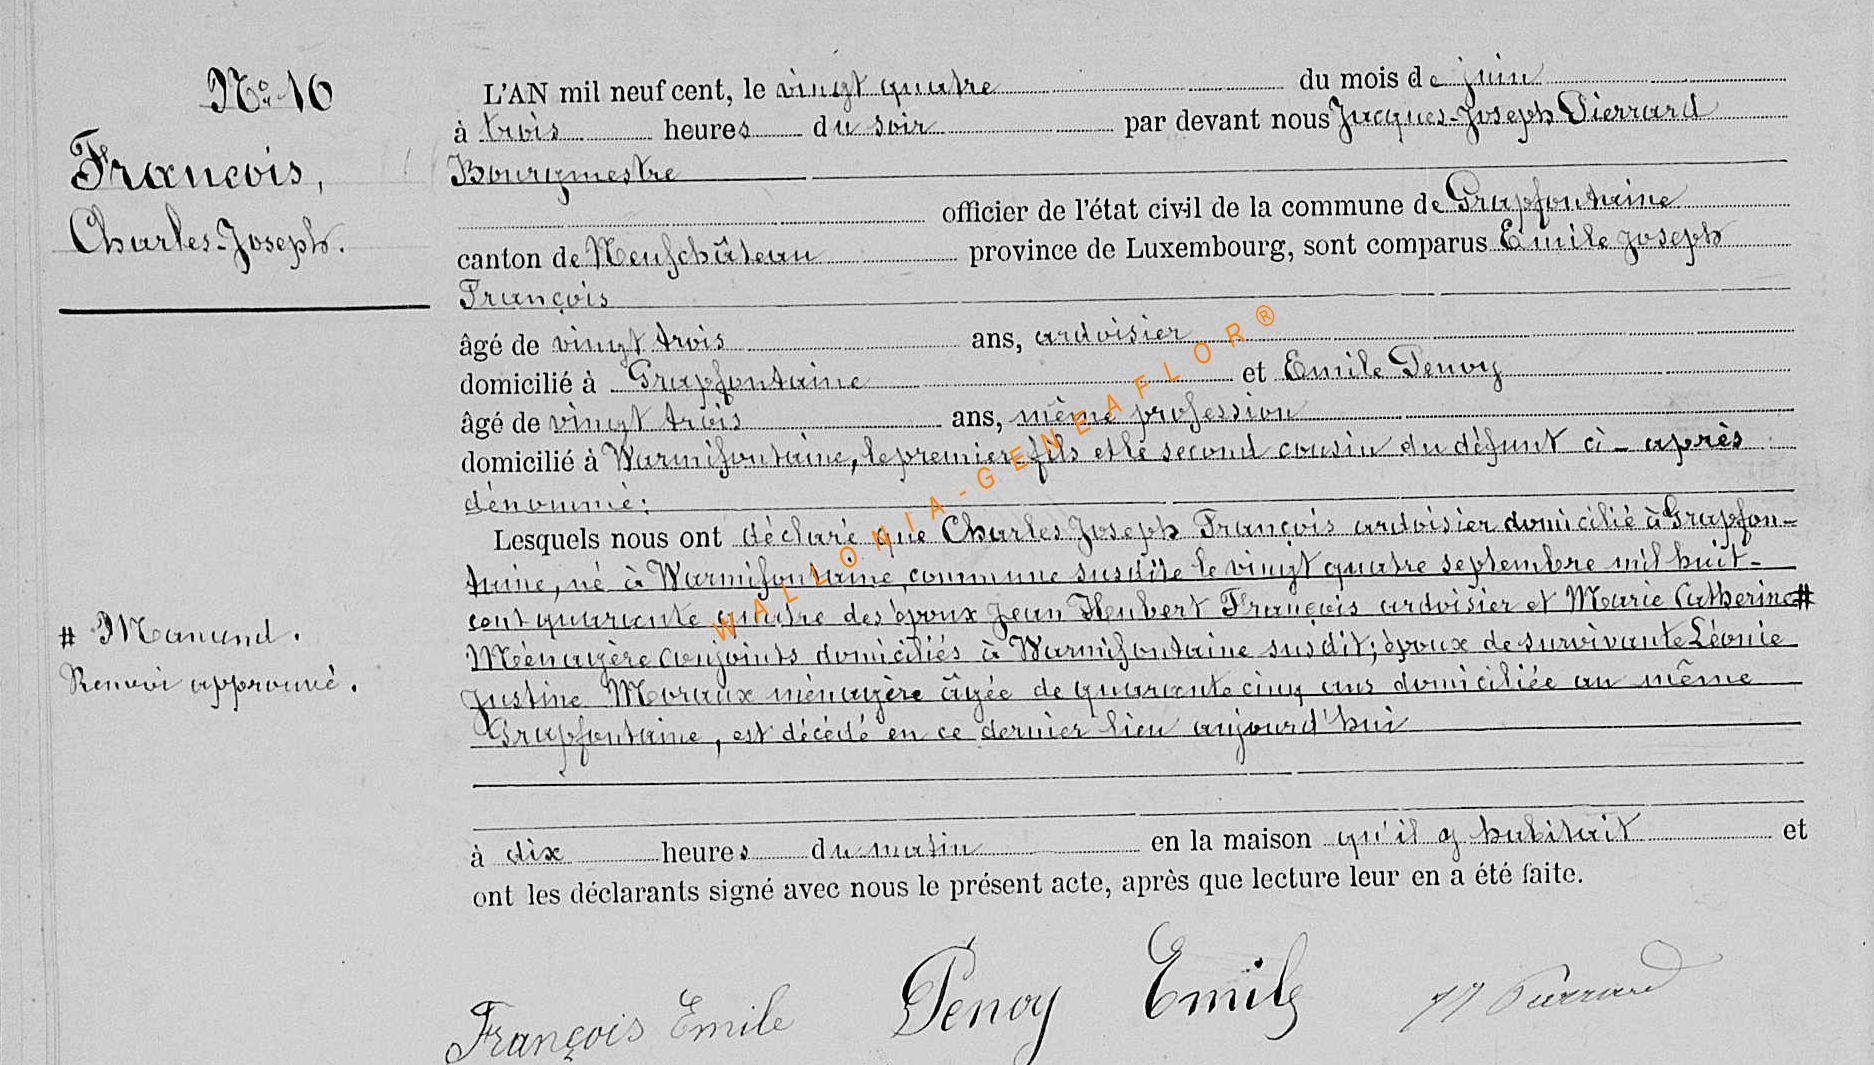 No 10
François,
Charles-Joseph.
L'AN mil neuf cent, le vingt quatre du mois de juin
à trois heures du soir par devant nous Jacques-Joseph Pierrard
Bourgmestre
officier de l'état civil de la commune de Grapfontaine
canton de Neufchâteau province de Luxembourg, sont comparus Emile Joseph
François
âgé de vingt trois ans, ardoisier
domicilié à Grapfontaine et Emile Penoy
âgé de vingt trois ans, même profession
domicilié à Warmifontaine, le premier fils et le second cousin du défunt ci-après
dénommé:
Lesquels nous ont déclaré que Charles Joseph François ardoisier domicilié à Grapfon-
taine, né à Warmifontaine, commune susdite le vingt quatre septembre mil huit-
cent quarante quatre des époux Jean Hubert François ardoisier et Marie Catherine #
Ménagère conjoints domiciliés à Warmifontaine susdit; époux de survivante Léonie
Justine Moraux ménagère âgée de quarante cinq ans domiciliée au même
Grapfontaine, est décédé en ce dernier lieu aujourd'hui
à dix heures du matin en la maison qu'il y habitait et
ont les déclarants signé avec nous le présent acte, après que lecture leur en a été faite.
# Manand.
Renvoi approuvé.
François Emile Penoy Emile JJ Pierrard
WALLONIA-GENEAFLOR®